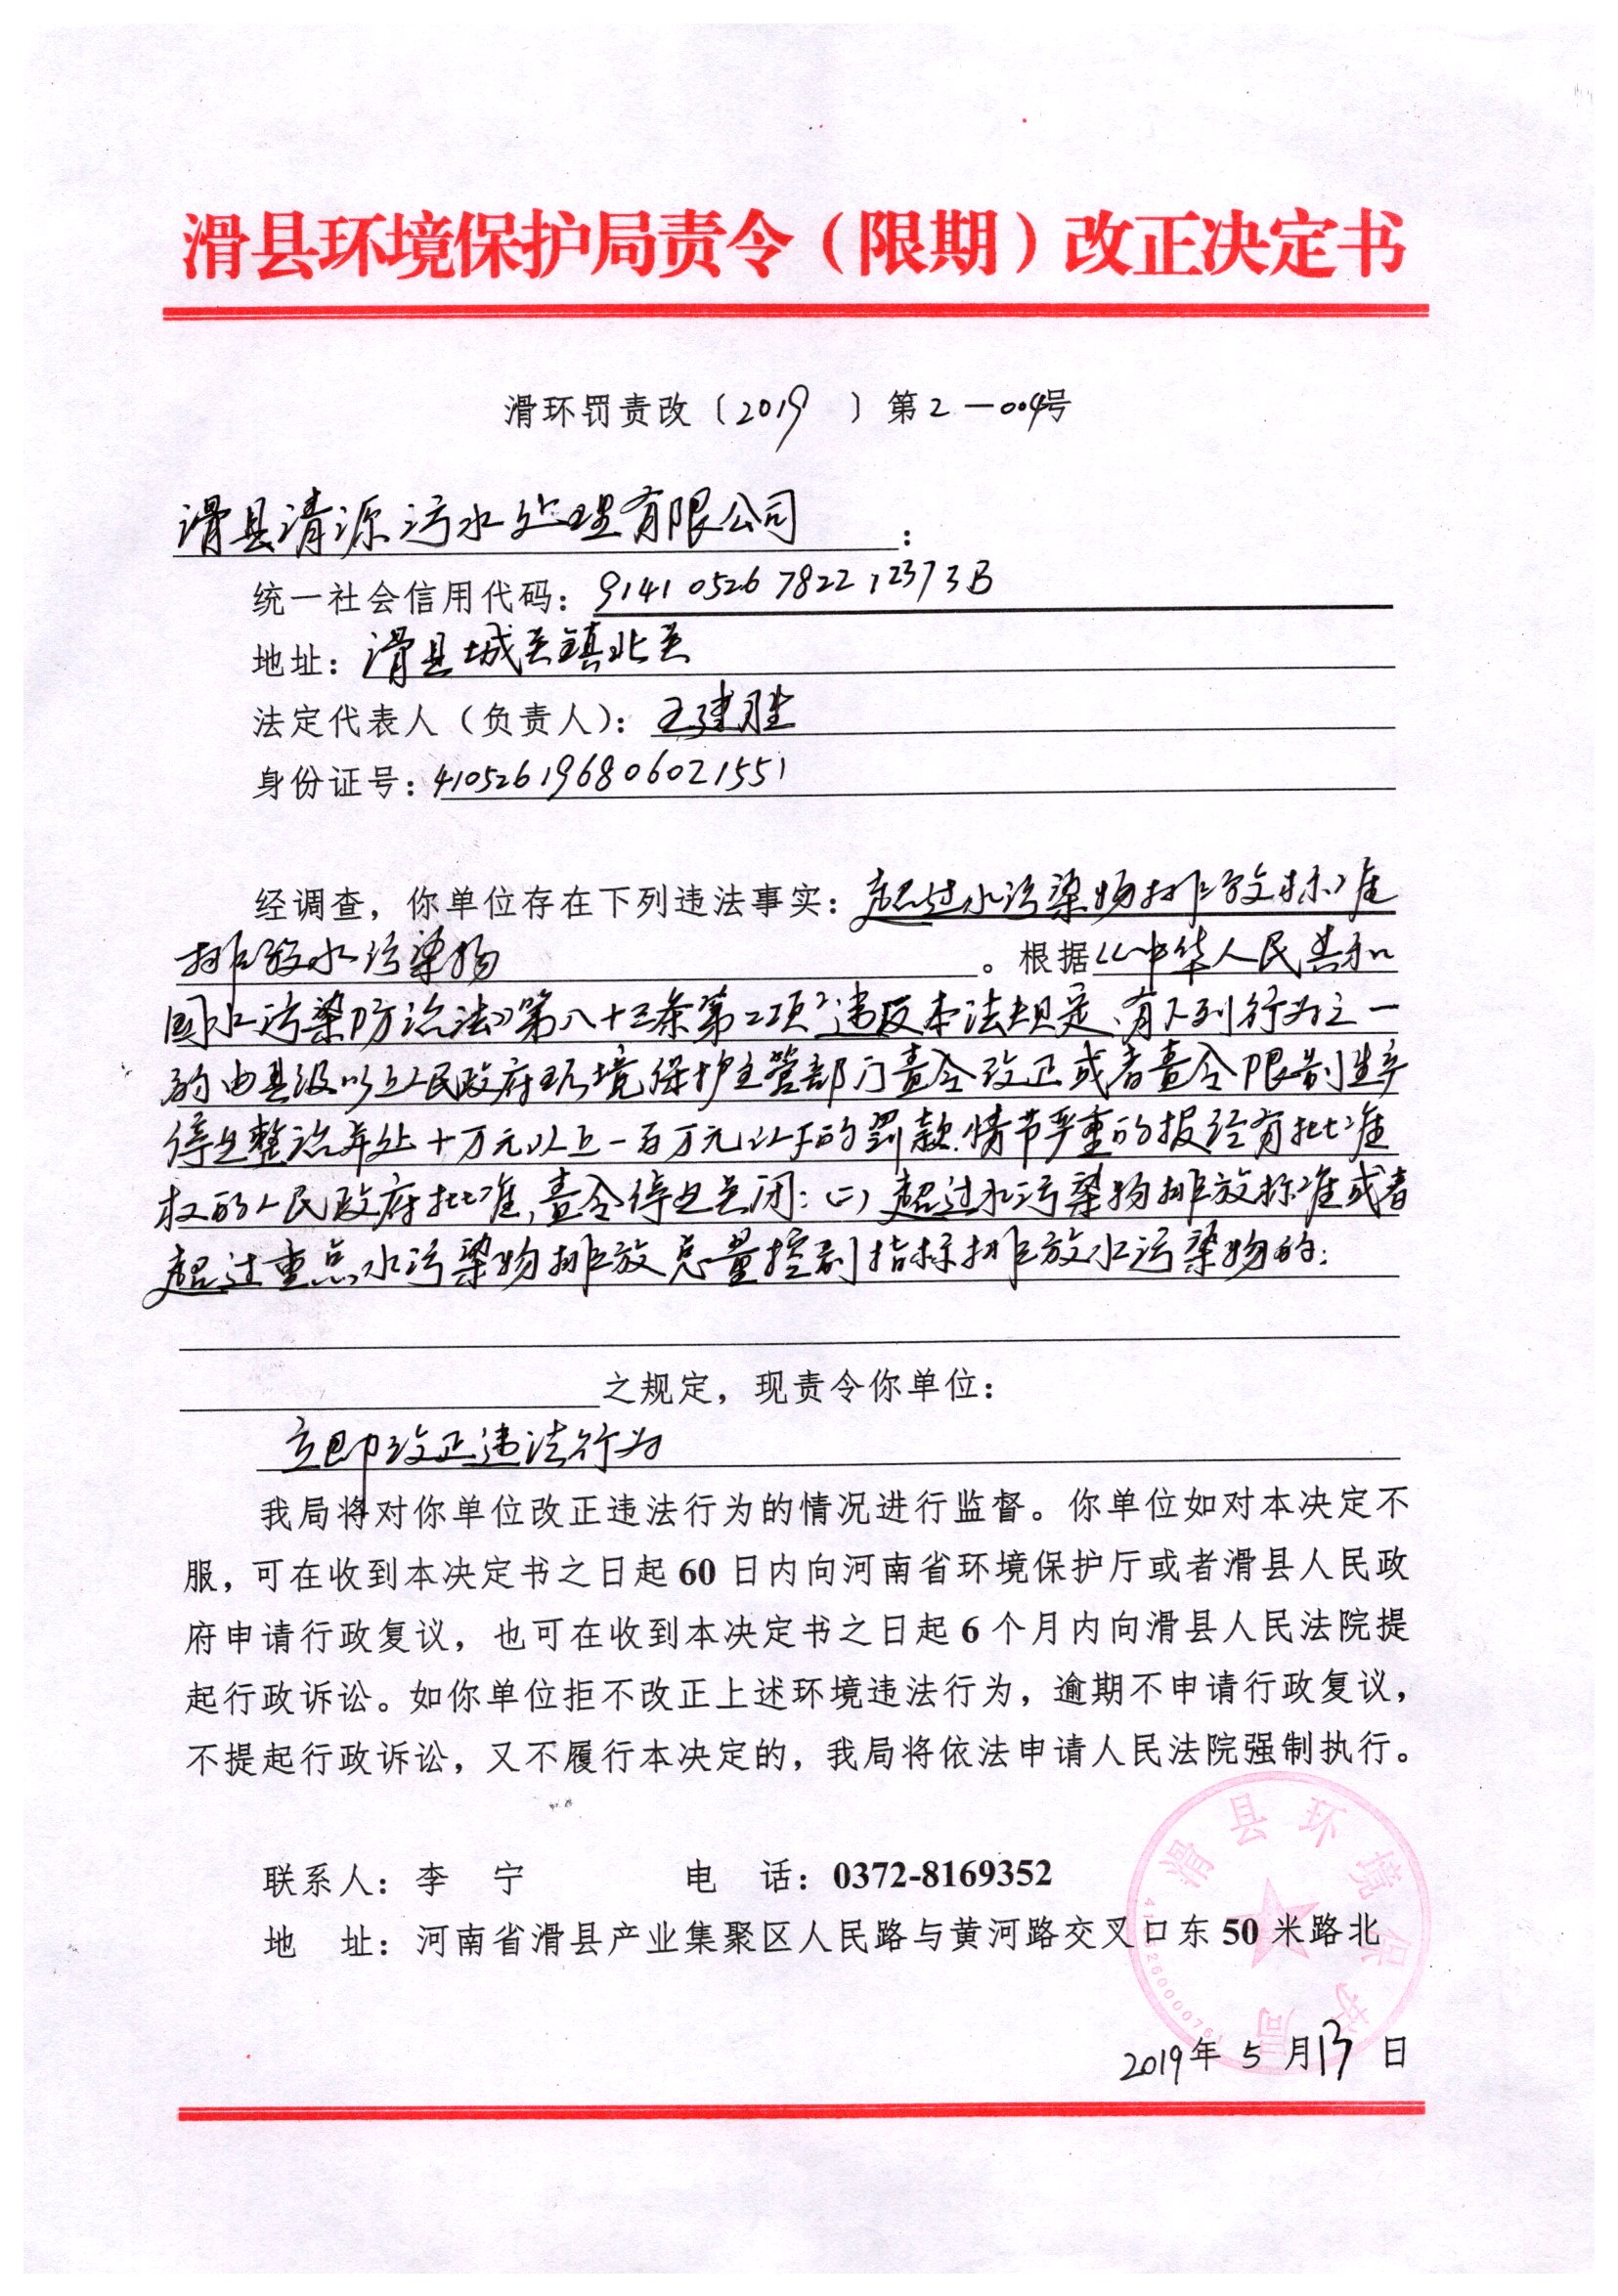 滑县环境保护局责令（限期）改正决定书
滑环罚责改〔2019 〕第2－004号
滑县清源污水处理有限公司：
统一社会信用代码：91410526782212373B
地址：滑县城关镇北关
法定代表人（负责人）：王建胜
身份证号：410526196806021551
经调查，你单位存在下列违法事实：超过水污染物排放标准
排放水污染物。根据《中华人民共和
国水污染防治法》第八十三条第二项“违反本法规定，有下列行为之一
的由县级以上人民政府环境保护主管部门责令改正或者责令限制生产
停产整治并处十万元以上一百万元以下的罚款.情节严重的报经有批准
权的人民政府批准，责令停业关闭：（二）超过水污染物排放标准或者
超过重点水污染物排放总量控制指标排放水污染物的；
之规定，现责令你单位：
立即改正违法行为
我局将对你单位改正违法行为的情况进行监督。你单位如对本决定不
服，可在收到本决定书之日起60日内向河南省环境保护厅或者滑县人民政
府申请行政复议，也可在收到本决定书之日起6个月内向滑县人民法院提
起行政诉讼。如你单位拒不改正上述环境违法行为，逾期不申请行政复议，
不提起行政诉讼，又不履行本决定的，我局将依法申请人民法院强制执行。
联系人：李 宁 电 话：0372-8169352
地 址：河南省滑县产业集聚区人民路与黄河路交叉口东50米路北
滑县环境保护局
2019年5月13日